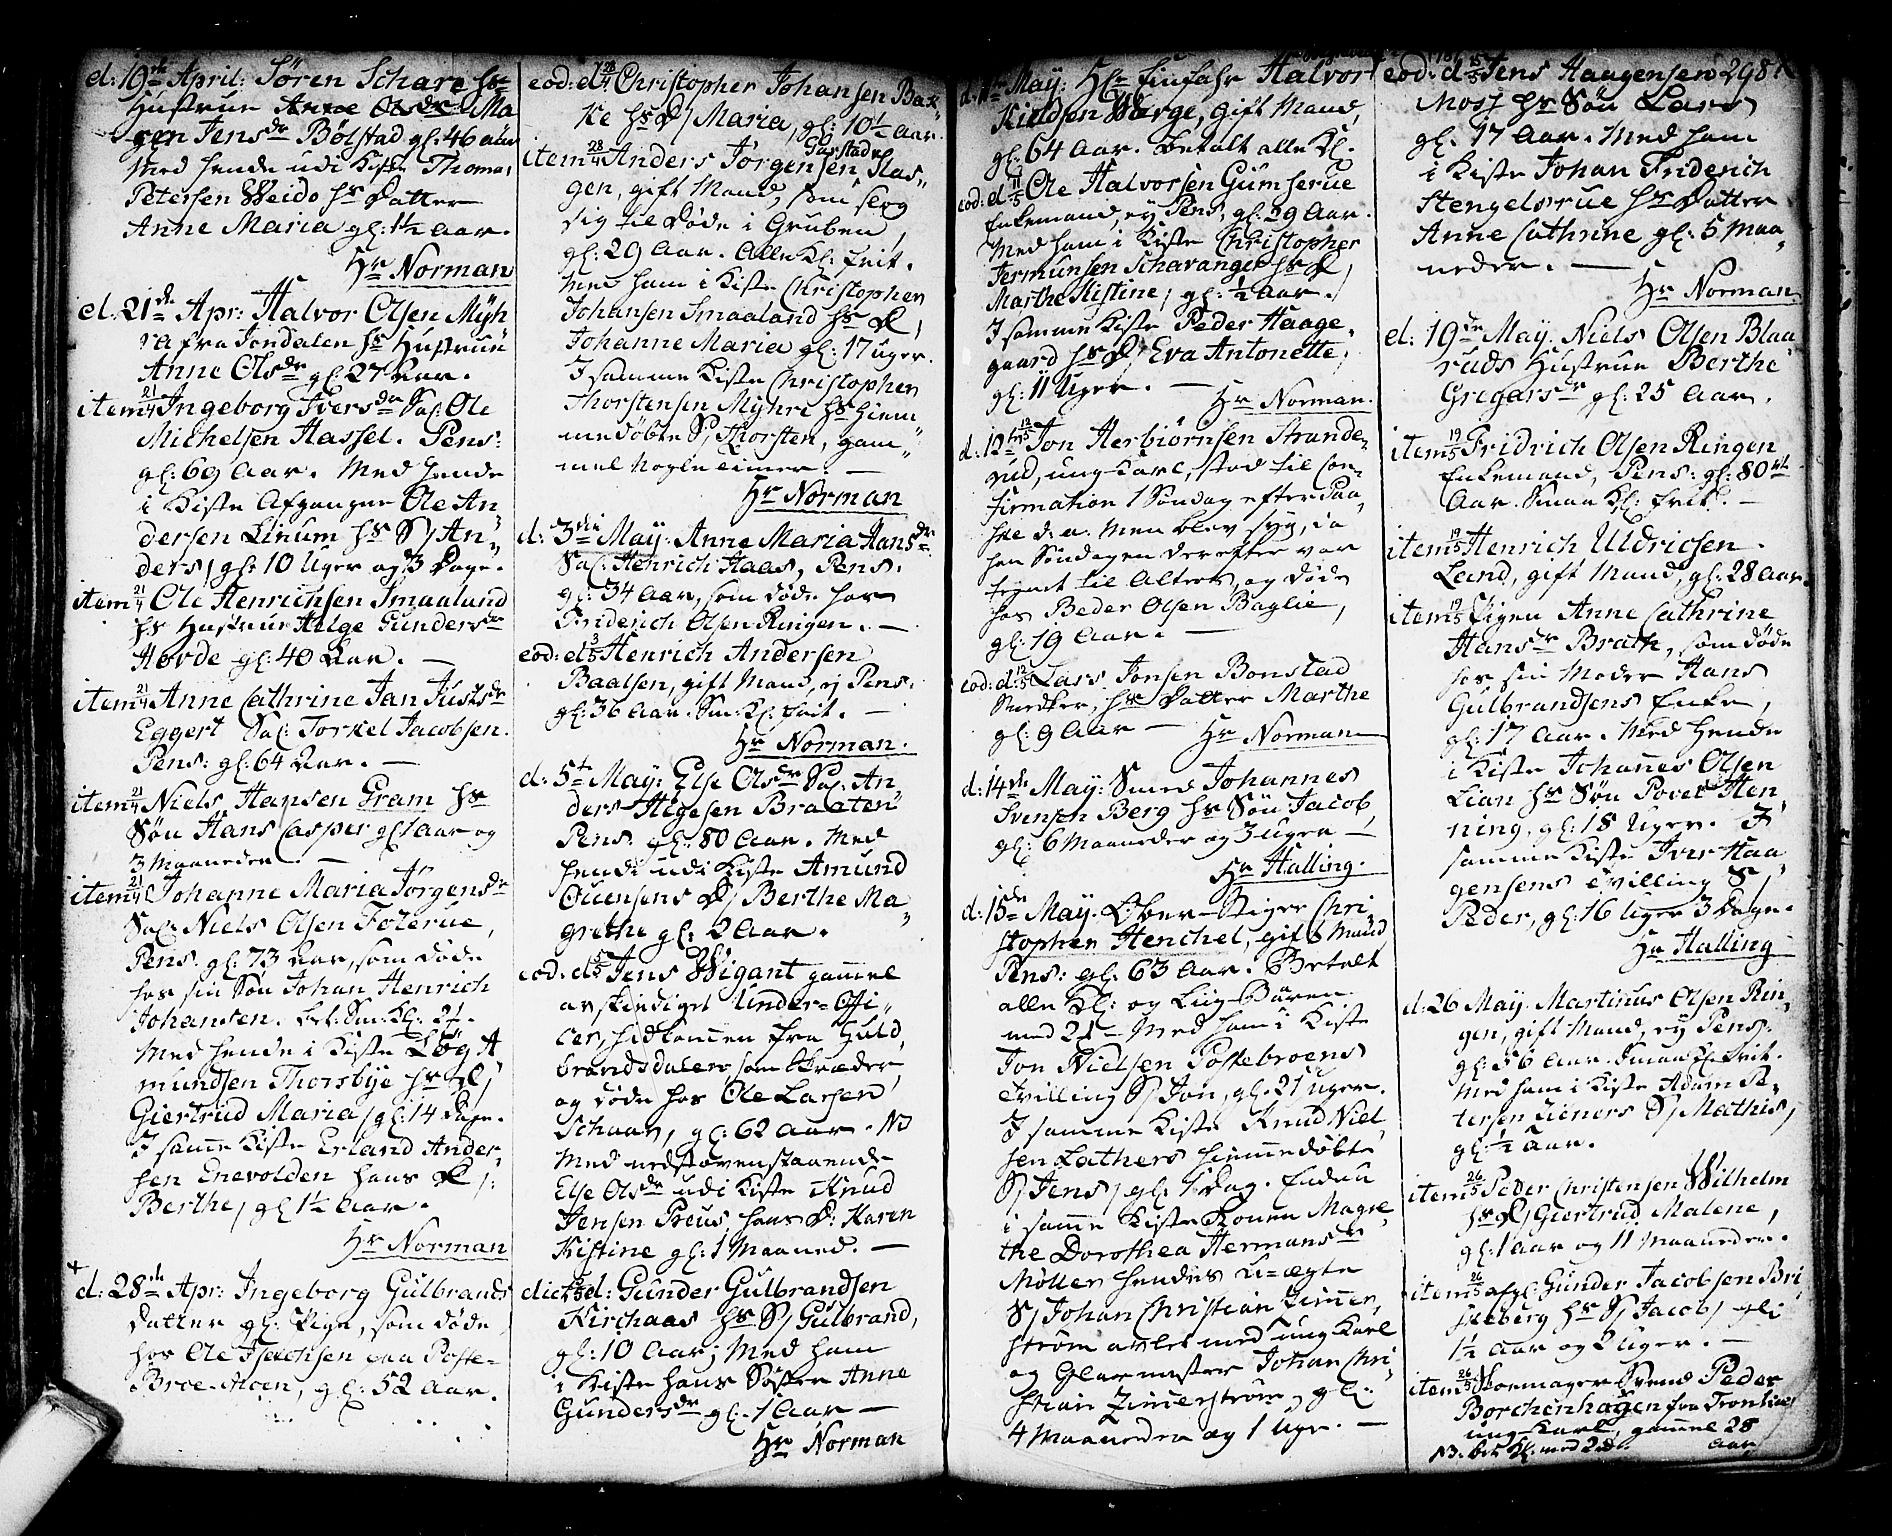 d: 19de April: Sören Schare hs
Hustrue Ma
ren Jensdr Bölstad gl: 46 aar
Med hende udi Kiste Thomas
Petersen Weido hs Datter
Anne Maria gl: 1½ Aar.
Hr Norman
d. 21de Apr: Halvor Olsen Myh
ra fra Jondalen hs Hustrue
Anne Olsdr gl. 27 Aar.
item 21/4 Ingeborg Iversdr Sal. Ole
Michelsen Hassel. Pens:
gl: 69 Aar. Med hende
i Kiste Afgangne Ole An
dersen Linum hs S/ An
ders, gl: 10 Uger og 3 Dage.
item 21/4 Ole Henrichsen Smaalund
hs Hustrue Helge Gundersdr
Hovde gl: 40 Aar. —
item 21/4 Anne Cathrine Jan Justsdr
Eggert Sal: Torkel Jacobsen.
Pens: gl: 64 Aar. —
item 21/4 Niels Hansen Gram hs
Sön Hans Casper gl 1 aar og
3 Maaneder. —
item 21/4 Johanne Maria Jörgensdr
Sal Niels Olsen Foterue,
Pens. gl: 73 Aar, som döde
hos sin Sön Johan Henrich
Johansen. bet: Sm: Kl: 2½.
Med hende i Kiste Lög A
mundsen Thorsbye hs D/
Giertrud Maria, gl: 14 Dage.
I same Kiste Erland Ander
sen Enevolden hans D/:
Berthe, gl 1½ Aar.
Hr Norman
d: 28de Apr: Ingeborg Gulbrands
datter gl: Pige, som döde
hos Ole Isachsen paa Poste-
Broe-Moen, gl: 52 Aar.
eod: d 28/4 Christopher Johansen Bak
ke hs D/ Maria, gl: 10½ Aar.
item 28/4 Anders Jörgensen Slas-
gen, gift Mand, som slog
sig til Döde i Gruben,
gl: 29 Aar. Alle Kl: frit.
Med ham i Kiste Christopher
Johansen Smaaland hs D,
Johanne Maria gl: 17 uger.
I samme Kiste Christopher
Thorstensen Myhre hs hiem
medöbte S/ Thorsten, gam
mel nogle timer. —
Hr Norman
d: 3die May: Anne Maria Hansdr
Sal: Henrich Haas, Pens.
gl: 34 Aar, som döde hos
Friderich Olsen Ringen. —
eod: d 3/5 Henrich Andersen
Baalsen, gift Mand, ej Pens.
gl: 36 Aar. Sm: Kl: frit. —
Hr Norman.
d: 5te May: Else Olsdr Sal. An
ders Helgesen Braaten
Pens. gl: 80 Aar. Med
hende udi Kiste Amund
Ouensens D/ Berthe Ma
grethe gl: 2 Aar.
eod: d 5/5 Jens Wigant gamel
afskediget Under-Offi
cer, hidkomen fra Guld
brandsdalen som Skræder,
og döde hos Ole Larsen
Schaar, gl: 62 aar. NB
Med nedstovenstaaende
Else Olsdr udi Kiste Knud
Jensen Preus hans D: Karen
Kistine gl: 1 Maaned. —
dicto d: Gunder Gulbrandsen
Kirchaas hs S/ Gulbrand,
gl: 10 Aar; Med ham
i Kiste hans Söster Anne
Gundersdr gl: 1 Aar —
Hr Norman
d. 11te May: Hr Einfahr Halvor
Kieldsen Werge, gift Mand,
gl: 64 Aar. Betalt alle Kl.
eod: d 11/5 Ole Halvorsen Gumserue
Enkemand, ej Pens, gl: 39 Aar.
Med ham i Kiste Christopher
Jermunsen Schavanger hs D/
Marthe Kistine, gl: ½ Aar.
I samme Kiste Peder Haage-
gaard hs D/ Eva Antonette,
gl: 11 Uger. —
Hr Norman.
d: 12te 12/5 Jon Herbiörnsen Strande-
rud, ung Karl, stod til Con-
firmation 1 Söndag efter Paa-
ske d. a. Men blev syg, da
han Söndagen derefter var
tegnet til Alters, og döde
hos Peder Olsen Baglie,
gl: 19 Aar. —
eod: d: 12/5 Lars Jonsen Bonstad
Snedker, hs Datter Marthe
gl: 9 Aar — Hr Norman
d: 14de May: Smed Johannes
Svensen Berg hs Sön Jacob,
gl: 6 Maaneder og 3 uger —
Hr Halling.
d: 15de May. Ober-Stiger Chri
stopher Henchel, gift Mand
Pens: gl: 63 Aar. Betalt
alle Kl: og Liig-Bören
med 21 — Med ham i Kiste
Jon Nielsen Postebroens
tvilling S/ Jon, gl: 21 uger.
I samme Kiste Knud Niel
sen Lathers hiemedöbte
S/ Jens, gl: 1 Dag. Endnu
i same Kiste Konen Magre-
the Dorothea Hermansdr
Möller hendes U-ægte
S/ Johan Christian Zimer-
ström avlet med ung Karl
og Glarmester Johan Chri-
stian Zimerström, gl:
4 Maaneder og 1 Uge. —
eod: d 15/5 Jens Haagensen 298
Moss hs Sön Lars
gl: 17 Aar. Med ham
i Kiste Johan Friderich
Stengelsrue hs Datter
Anne Cathrine gl: 5 Maa
neder. —
Hr Norman.
d: 19de May Niels Olsen Blaa
ruds Hustrue Berthe
Gregarsdr gl: 25 Aar.
item 19/5 Fridrich Olsen Ringen
Enkemand, Pens: gl: 80
Aar. Smaa Kl: frit. —
item 19/5 Henrich Uldricsen
Lund, gift Mand, gl: 28 Aar.
item 19/5 Pigen Anne Cathrine
Hansdr Brath, som döde
hos sin Moder Hans
Gulbrandsens Enke,
gl: 17 Aar. Med hende
i Kiste Johanes Olsen
Lian hs Sön Povel Hen
ning, gl: 18 Uger. I
samme Kiste Iver Haa
gensens tvilling S/
Peder, gl: 16 Uger 3 Dage.
Hr Halling
d: 26 May. Martinus Olsen Rin
gen, gift Mand, ej Pens.
gl: 56 aar. Smaa Kl: frit.
Med ham i Kiste Adam Pe-
tersen Zieners S/ Mathis,
gl: ½ Aar.
item 26/5 Peder Christensen Wilhelm
hs D/ Giertrud Malene,
gl: 1 Aar og 11 Maaneder.
item 26/5 afgl: Gunder Jacobsen Bri
keberg hs S/ Jacob, gl:
1½ Aar og 2 uger. —
item 26/5 Skomager Svend Peder
Borchenhagen fra Tronhiem
ung-Karl, gammel 28
Aar
NB. bet: Kl: med 2rd.